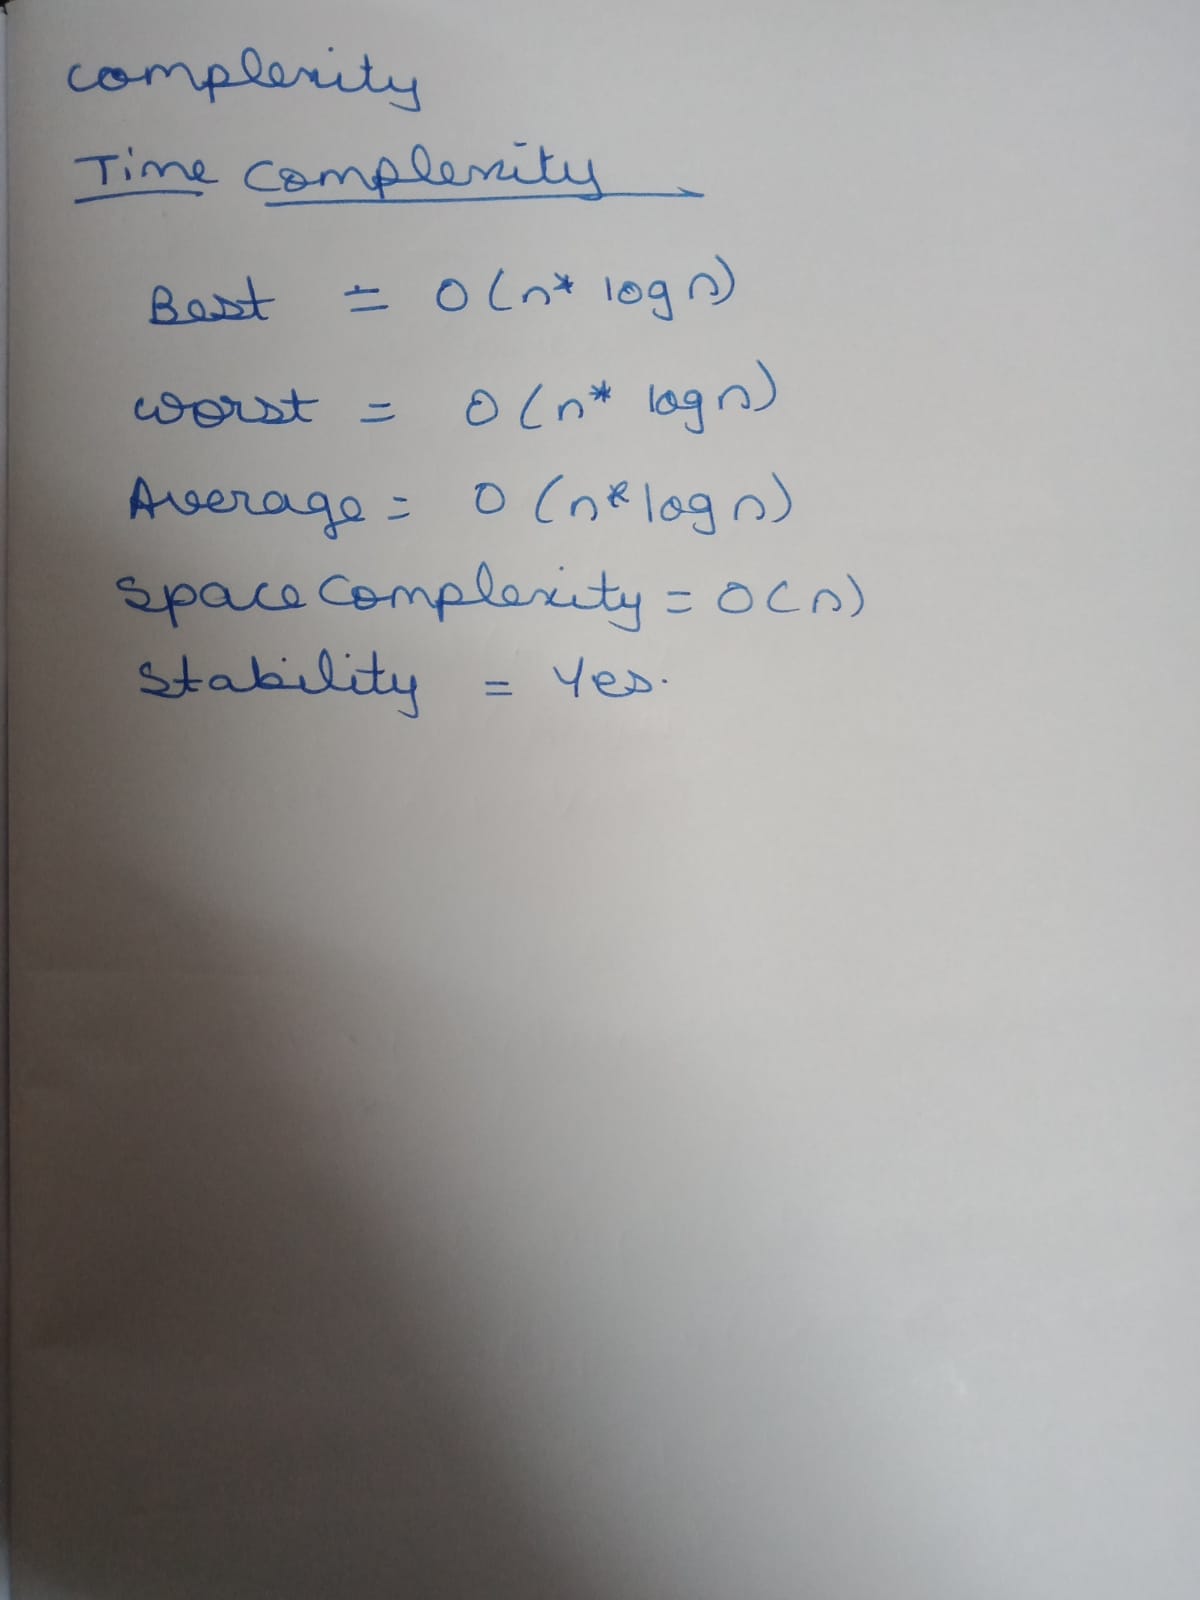 complexity
Time complexity
Best = O(n* log n)
worst = O(n* log n)
Average = O(n* log n)
Space Complexity = O(n)
Stability = Yes.